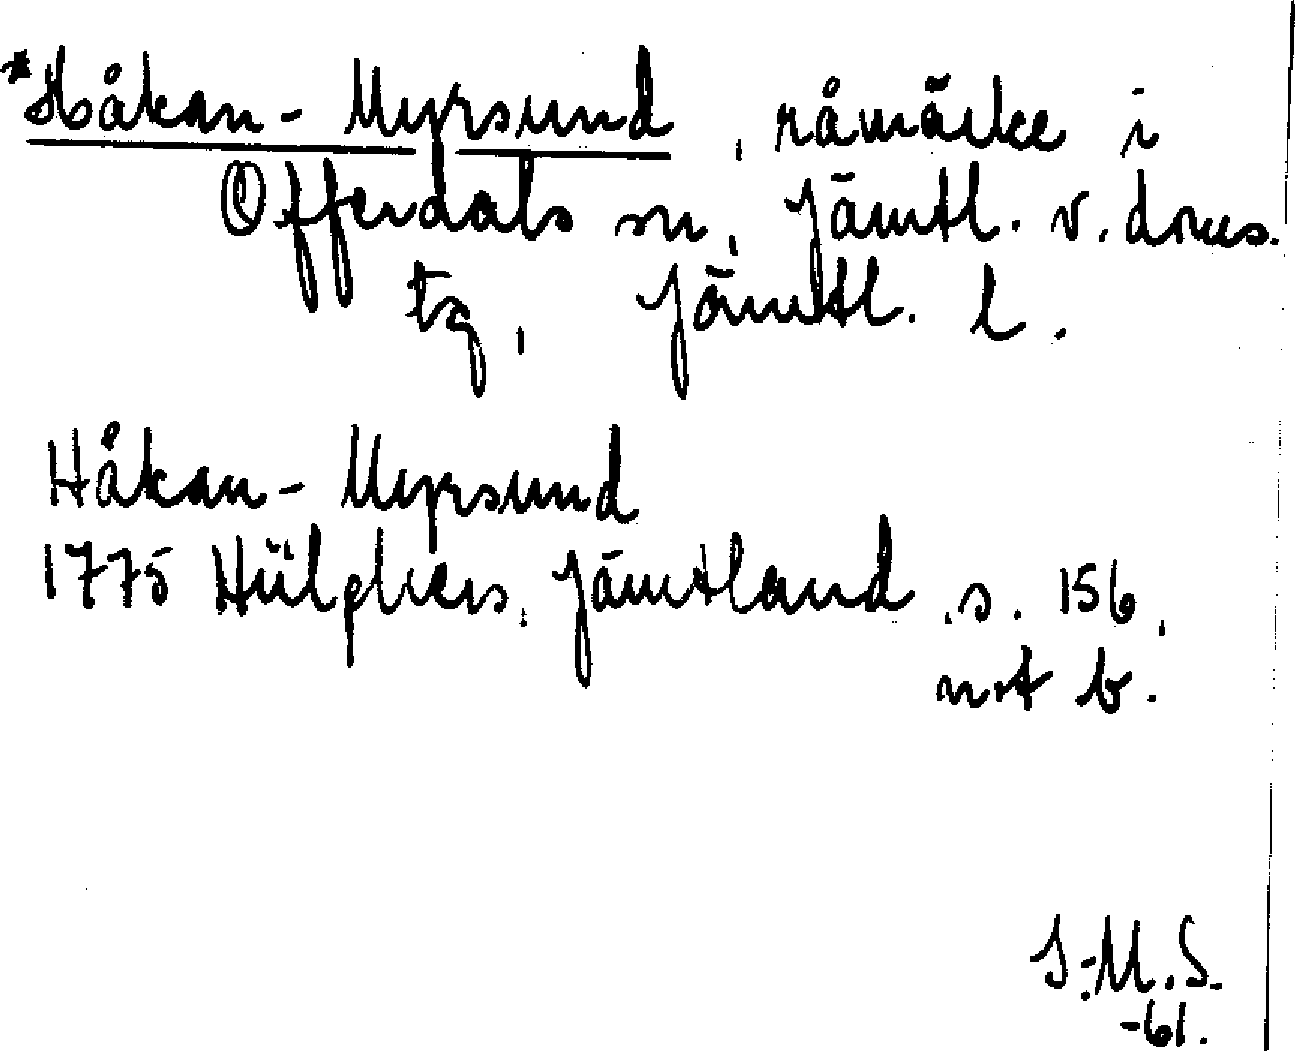 *Håkan-Myrsund, råmärke i
Offerdals sn, Jämtl. v. doms.
tg, Jämtl. l.
Håkan-Myrsund
1775 Hülphers, Jämtland, s. 156,
not b.
I-M.S.
-61.